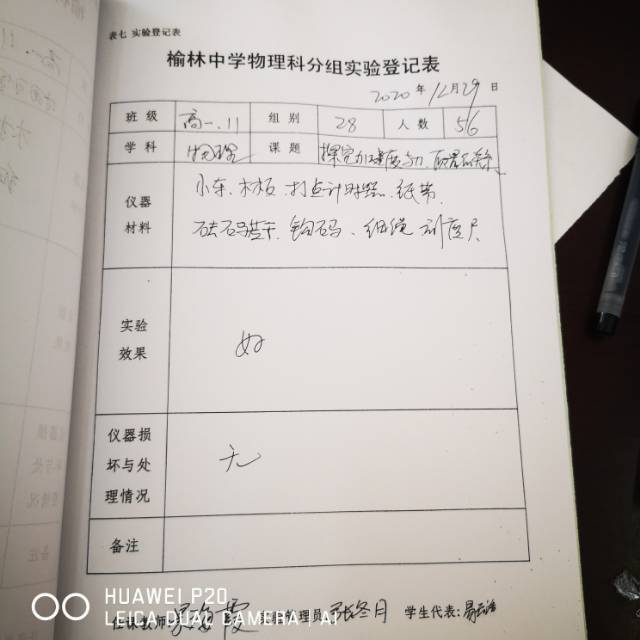 表七 实验登记表
榆林中学物理科分组实验登记表
2020年12月29日
班级 高一.11 组别 28 人数 56
学科 物理 课题 探究加速度与力、质量的关系
仪器材料 小车、木板、打点计时器、纸带、
砝码若干、钩码、细绳 刻度尺
实验效果 好
仪器损坏与处理情况 无
备注
任课教师 管理员 张冬月 学生代表:
HUAWEI P20
LEICA DUAL CAMERA | AI